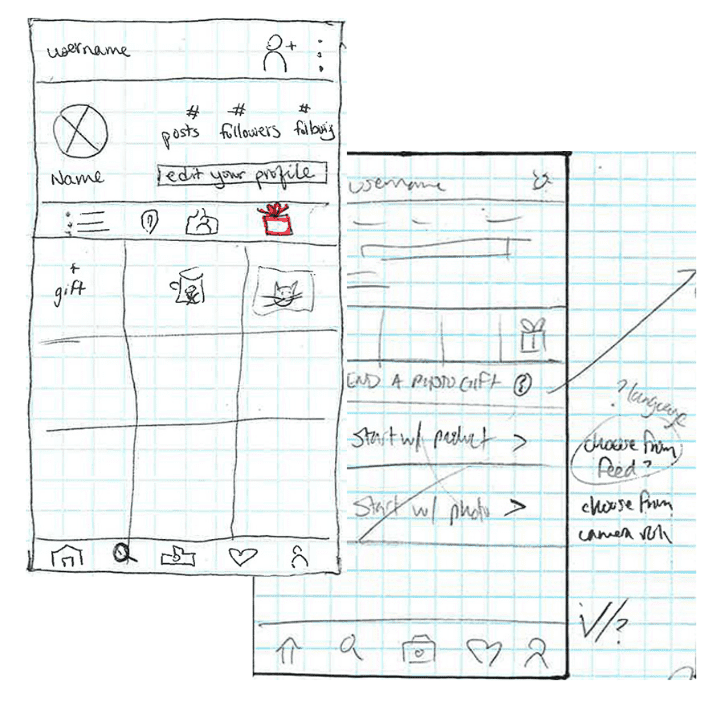 username
# # #
posts followers following
Name edit your profile
+
gift
username
END A PHOTO GIFT ?
Start w/ product >
Start w/ photo >
? language
choose from
feed?
choose from
camera roll